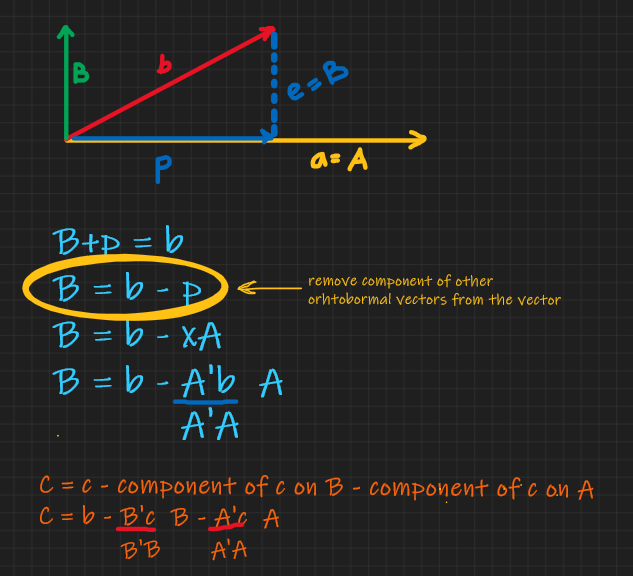 B
b
e=B
P
a=A
B+p = b
B = b - p
remove component of other
orhtobormal vectors from the vector
B = b - xA
B = b - A'b A
A'A
C = c - component of c on B - component of c on A
C = b - B'c B - A'c A
B'B A'A